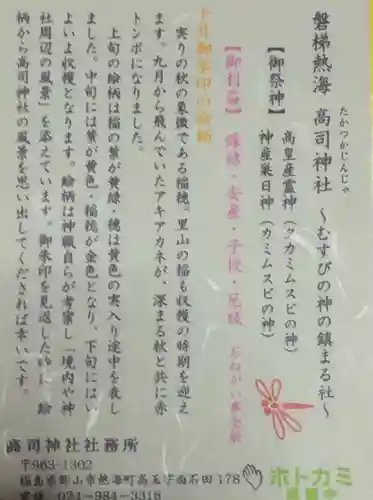 磐梯熱海 高司神社 ～むすびの神の鎮まる社～
たかつかじんじゃ
【御祭神】
高皇産霊神（タカミムスビの神）
神産巣日神（カミムスビの神）
【御利益】 縁結・安産・子授・厄祓
十月御朱印の絵柄
実りの秋の象徴である稲穂。里山の稲も収穫の時期を迎え
ます。九月から飛んでいたアキアカネが、深まる秋と共に赤
トンボになりました。
上旬の絵柄は稲の葉が黄緑・穂は黄色の実入り途中を表し
ました。中旬には葉が黄色・稲穂が金色となり、下旬にはい
よいよ収穫となります。絵柄は神職自らが考案し「境内や神
社周辺の風景」を添えています。御朱印を見返した時に、絵
柄から高司神社の風景を思い出してくだされば幸いです。
高司神社社務所
〒963-1302
福島県郡山市熱海町高玉字南石田178
電話 024-984-3316
ホトカミ